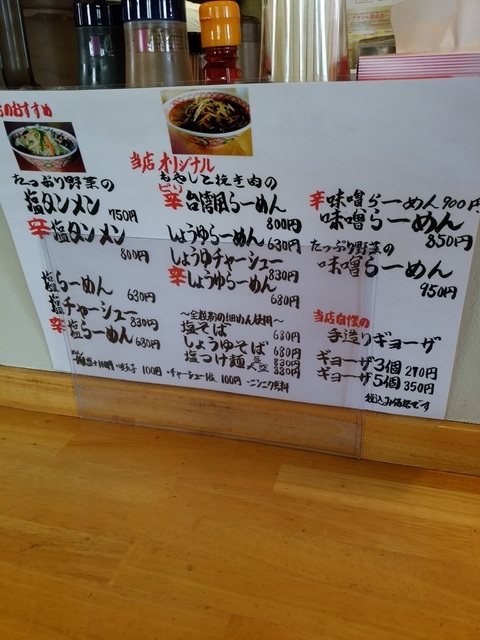 のおすすめ
たっぷり野菜の
塩タンメン 750円
辛塩タンメン
800円
塩らーめん 630円
塩チャーシュー 830円
辛塩らーめん 680円
当店オリジナル
もやしと挽き肉の
ピリ辛台湾風らーめん
800円
しょうゆらーめん 630円
しょうゆチャーシュー
830円
辛しょうゆらーめん
680円
～全粒粉の細めん使用～
塩そば 680円
しょうゆそば 680円
塩つけ麺
辛味噌らーめん 900円
味噌らーめん
850円
たっぷり野菜の
味噌らーめん
950円
当店自慢の
手造りギョーザ
ギョーザ3個 210円
ギョーザ5個 350円
税込み価格です
100円・チャーシュー1枚 100円・ニンニク無料